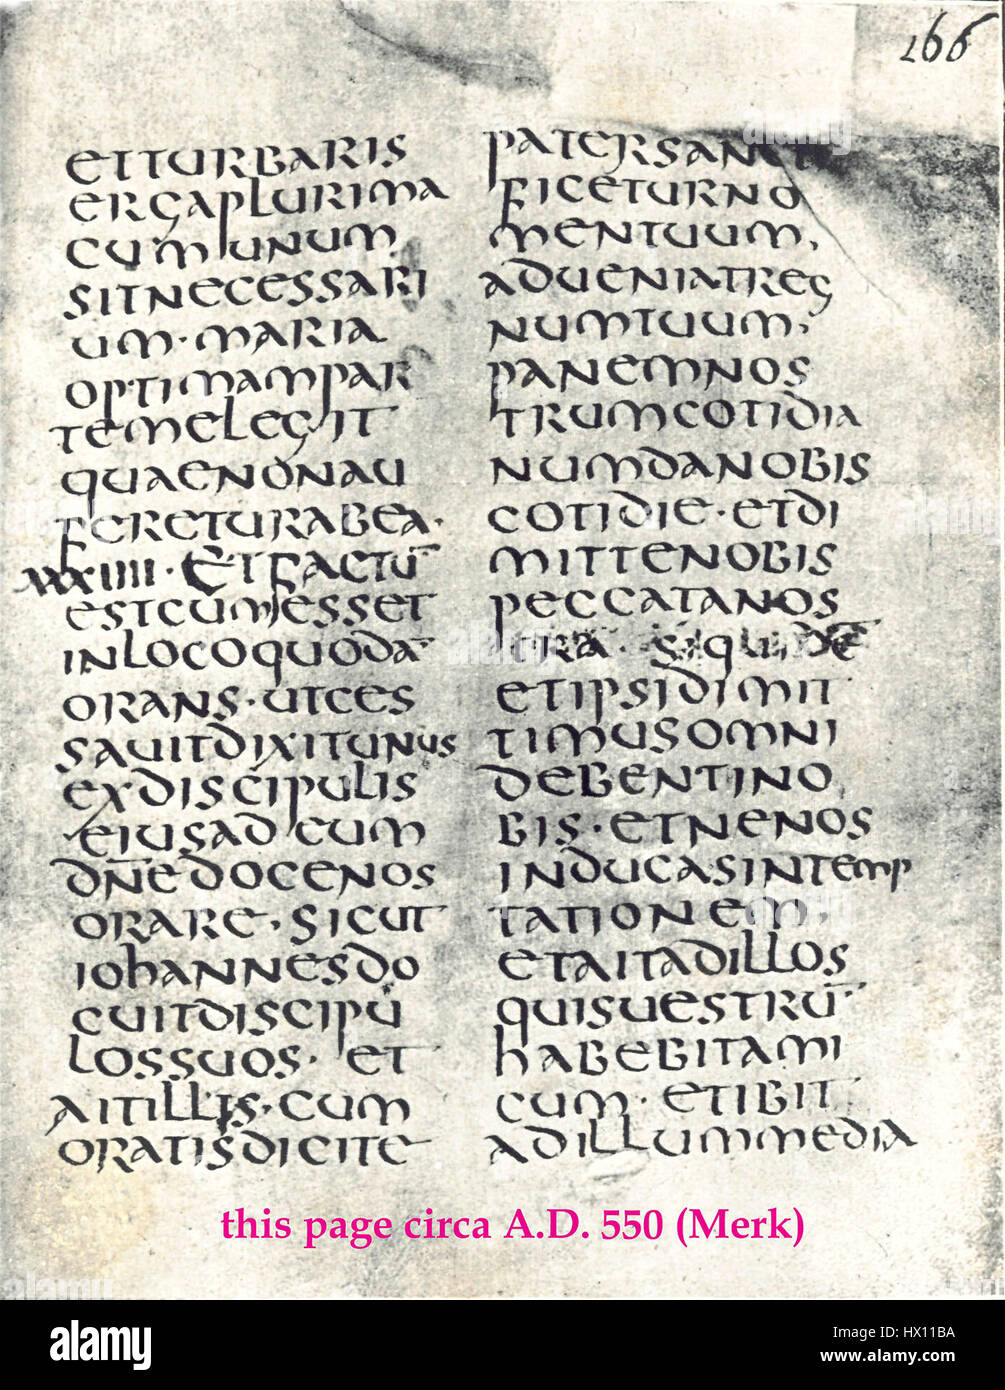 266
ETTURBARIS
ERGAPLURIMA
CUMUNUM
SITNECESSARI
UM·MARIA
OPTIMAMPAR
TEMELEGIT
QUAENONAU
FERETURABEA·
XXXIIII·ETFACTŪ
ESTCUMESSET
INLOCOQUODĀ
ORANS·UTCES
SAUITDIXITUNUS
EXDISCIPULIS
EIUSADEUM
DN̄EDOCENOS
ORARE·SICUT
IOHANNESDO
CUITDISCIPU
LOSSUOS·ET
AITILLIS·CUM
ORATISDICITE
PATERSANCT
FICETURNO
MENTUUM,
ADUENIATREG
NUMTUUM,
PANEMNOS
TRUMCOTIDIA
NUMDANOBIS
COTIDIE·ETDI
MITTENOBIS
PECCATANOS
TRA·SIQUIDĒ
ETIPSIDIMIT
TIMUSOMNI
DEBENTINO
BIS·ETNENOS
INDUCASINTEMP
TATIONEM·
ETAITADILLOS
QUISUESTRŪ
HABEBITAMI
CUM·ETIBIT
ADILLUMMEDIA
this page circa A.D. 550 (Merk)
alamy
Image ID: HX11BA
www.alamy.com